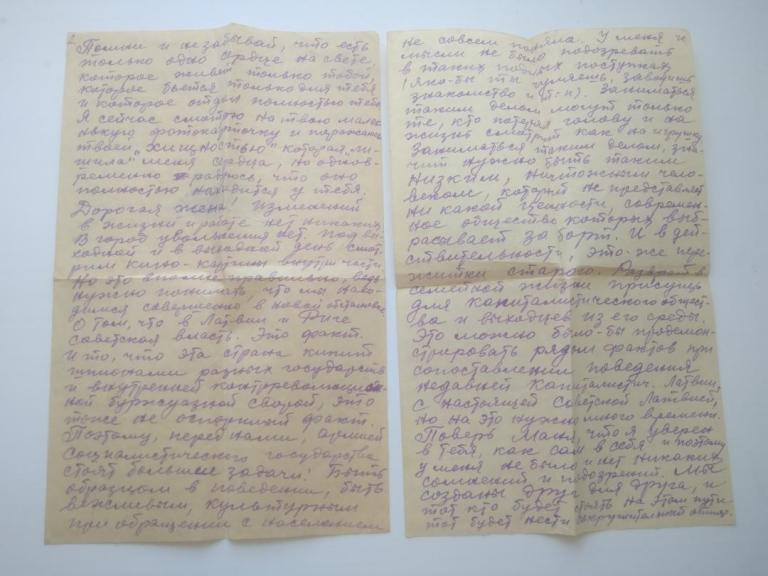 2
Помни и не забывай, что есть
только одно сердце на свете,
которое живет только тобой,
которое бьется только для тебя
и которое отдан полностью тебе
Я сейчас смотрю на твою мален
нькую фотокарточку и поражаюсь
твоей "хищностью" которая ли-
шила меня сердца, но однов-
ременно радуюсь, что оно
полностью находится у тебя.
Дорогая жена! Изменений
в жизни и работе нет никаких.
В город увольнения нет. Под вы-
ходной и в выходной день смот-
рим кино-картины внутри части.
Но это вполне правильно, ведь
нужно понимать что мы нахо-
димся совершенно в новой обстановке.
О том, что в Латвии и Риге
советская власть. Это факт.
И то, что эта страна кишит
шпионами разных государств
и внутренней контрреволюцион-
ной буржуазной сворой, это
тоже не оспоримый факт.
Поэтому, перед нами, армией
социалистического государства
стоят большие задачи! Быть
образцом в поведении, быть
вежливым, культурным
при обращении с населением
не совсем поняла. У меня и
мысли не было подозревать
в таких подлых поступках
(яко-бы ты гуляешь, заводишь
знакомство и т.п). Заниматься
таким делом могут только
те, кто потерял голову и на
жизнь смотрит как на игрушку.
Заниматься таким делом, зна-
чит нужно быть таким
низким, ничтожным чело-
веком, который не представляет
ни какой ценности, современ-
ное общество которых выб-
расывает за борт. И в дей-
ствительности, это же пере-
житки старого. Разврат в
семейной жизни присущ
для капиталистического общест-
ва и выходцев из его среды.
Это можно было-бы продемон-
стрировать рядом фактов при
сопоставлении поведения
недавней капиталистич. Латвии,
с настоящей Советской Латвией,
но на это нужно много времени.
Поверь Маня, что я уверен
в тебя, как сам в себя и поэтому
у меня не было и нет никаких
сомнений и подозрений. Мы
созданы друг для друга, и
тот кто будет стоять на этом пути-
тот будет нести сокрушительный